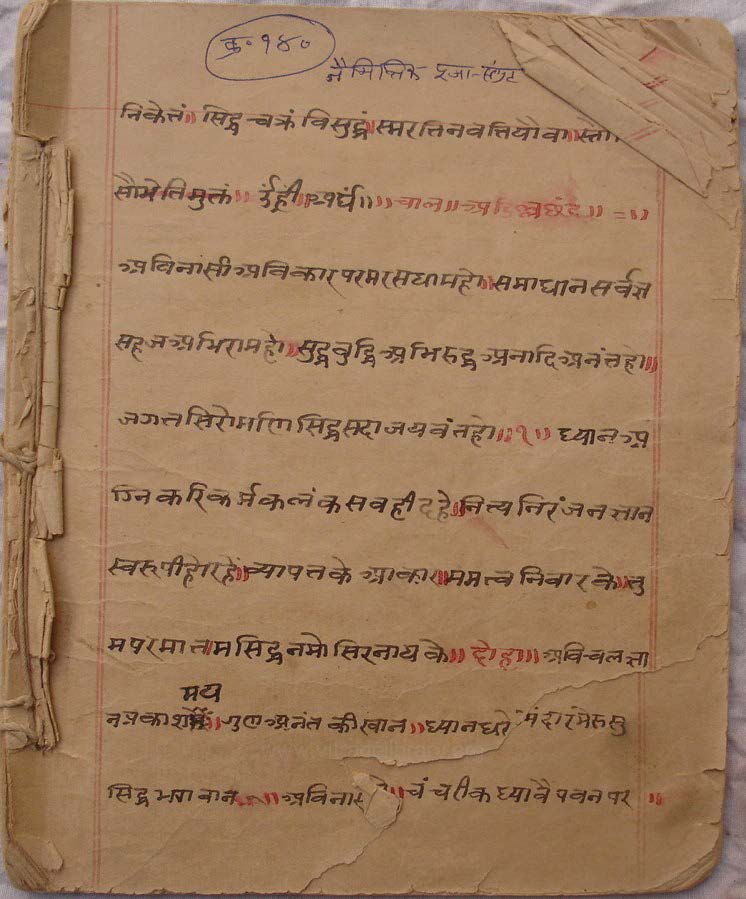 क्र॰ १४०
नैमित्तिक पूजा-संग्रह
निकेतं॥ सिद्ध चक्रं विसुद्धं॥ स्मरत्ति नवत्ति यो वा॥ स्तो
सौभेति मुक्तं॥ र्उं ह्री अर्घं॥ चाल॥ छंद॥
अविनासी अविकार परमरसधाम हो॥ समाधान सर्वज्ञ
सहज अभिराम हो॥ सुद्ध बुद्धि अभिरुद्ध अनादि अनंत हो॥
जगत्त सिरोमणि सिद्ध सदा जयवंत हो॥१॥ ध्यान अ
ग्नि करि कर्म कलंक सवही दहे॥ नित्य निरंजन त्तान
स्वरूपी हो रहे॥ व्यापत्त के आकार॥ ममत्व निवार के॥ तु
म परमात्तम सिद्ध नमो सिरनाय के॥ दोहा॥ अविचल त्ता
मय
न प्रकाश॥ गुण अनंत की खान॥ ध्यान धरे सु
सिद्ध भगवान॥ अविनास॥ चंचरीक ध्यावै पवन पर॥